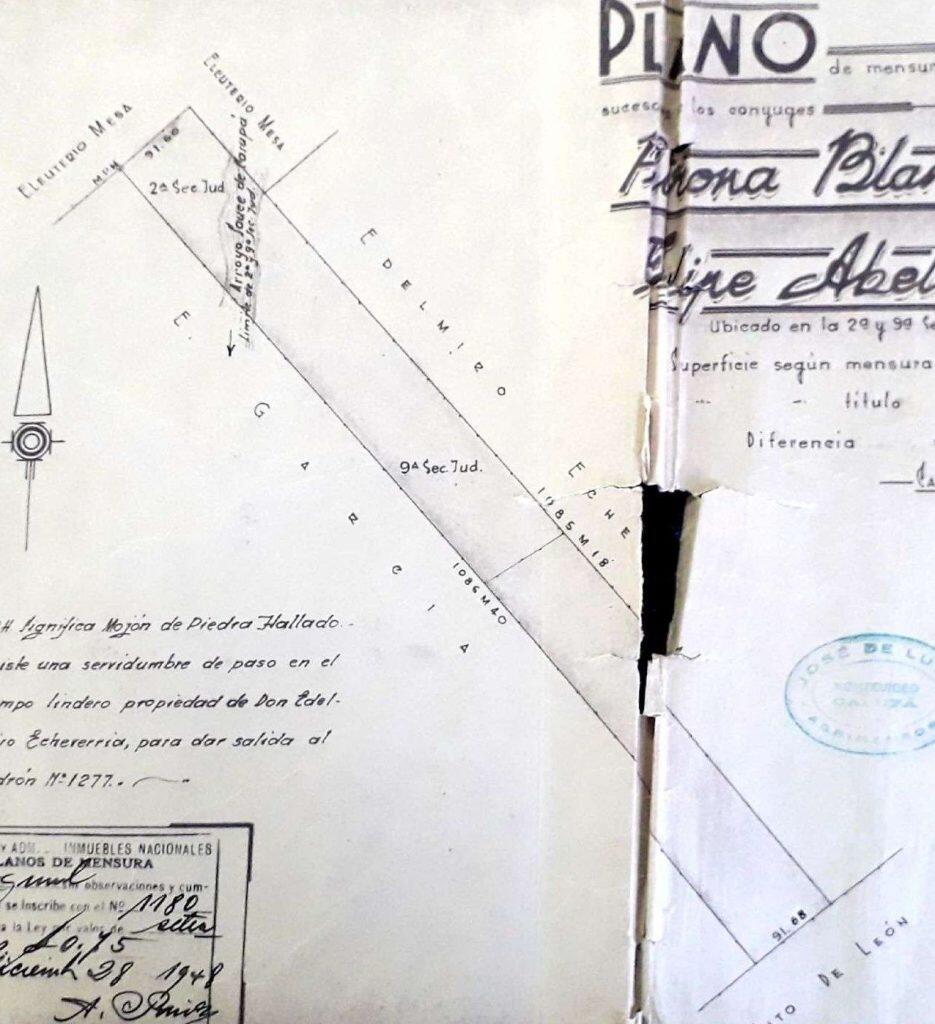 PLANO
de mensur
suceso los conyuges
Blan
Abel
Ubicado en la 2ª y 9ª Se
Superficie según mensura
" " título
Diferencia
ELEUTERIO MESA
ELEUTERIO MESA
MPH 91.60
2ª Sec. Jud
Arroyo Sauce de
Limite de 2ª y 9ª Sec. Jud.
EDELMIRO ECHE
E. GARCIA
9ª Sec. Jud.
1085 M 18
1086 M 40
H significa Mojón de Piedra Hallado.-
iste una servidumbre de paso en el
mpo lindero propiedad de Don Edel-
ro Echeverria, para dar salida al
drón Nº 1277.-
JOSÉ DE LU
MONTEVIDEO
AGRIMENSOR
Y ADM. INMUEBLES NACIONALES
LANOS DE MENSURA
observaciones y cum-
se inscribe con el Nº 1180
a la Ley por valor de
0.75
iciemb 28 1948
A.
91.68
TO DE LEÓN